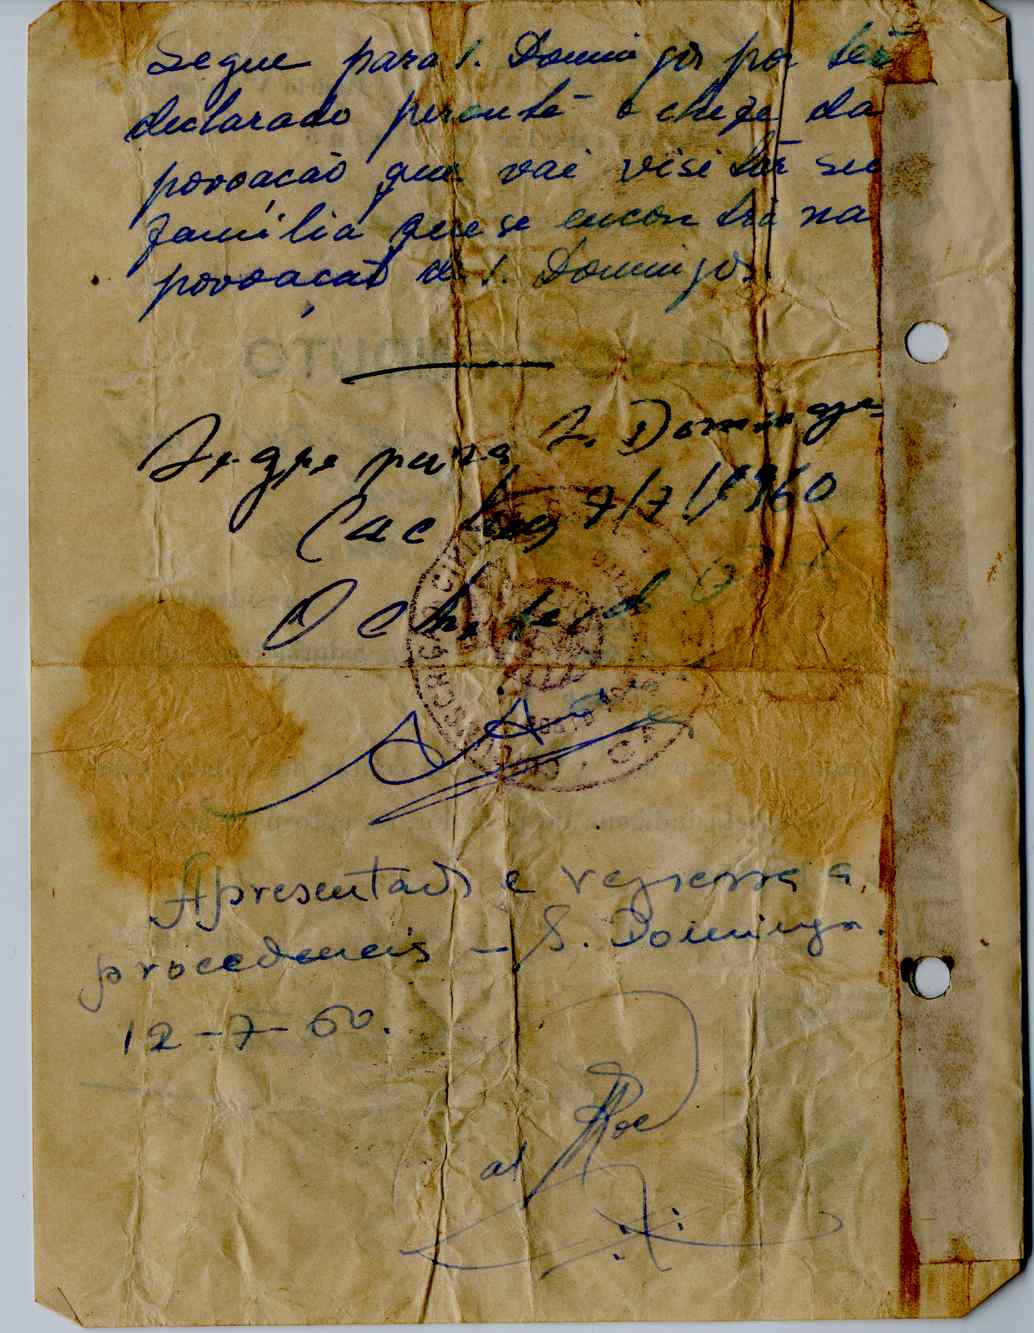 Segue para S. Domingos por ter
declarado perante o chefe da
povoação que vai visitar su
família que se encontra na
povoação de S. Domingos.
Segue para S. Domingos
Cacheu 7/7/1960
O Chefe do
Apresentado e regressa a
procedencia – S. Domingos.
12-7-60.